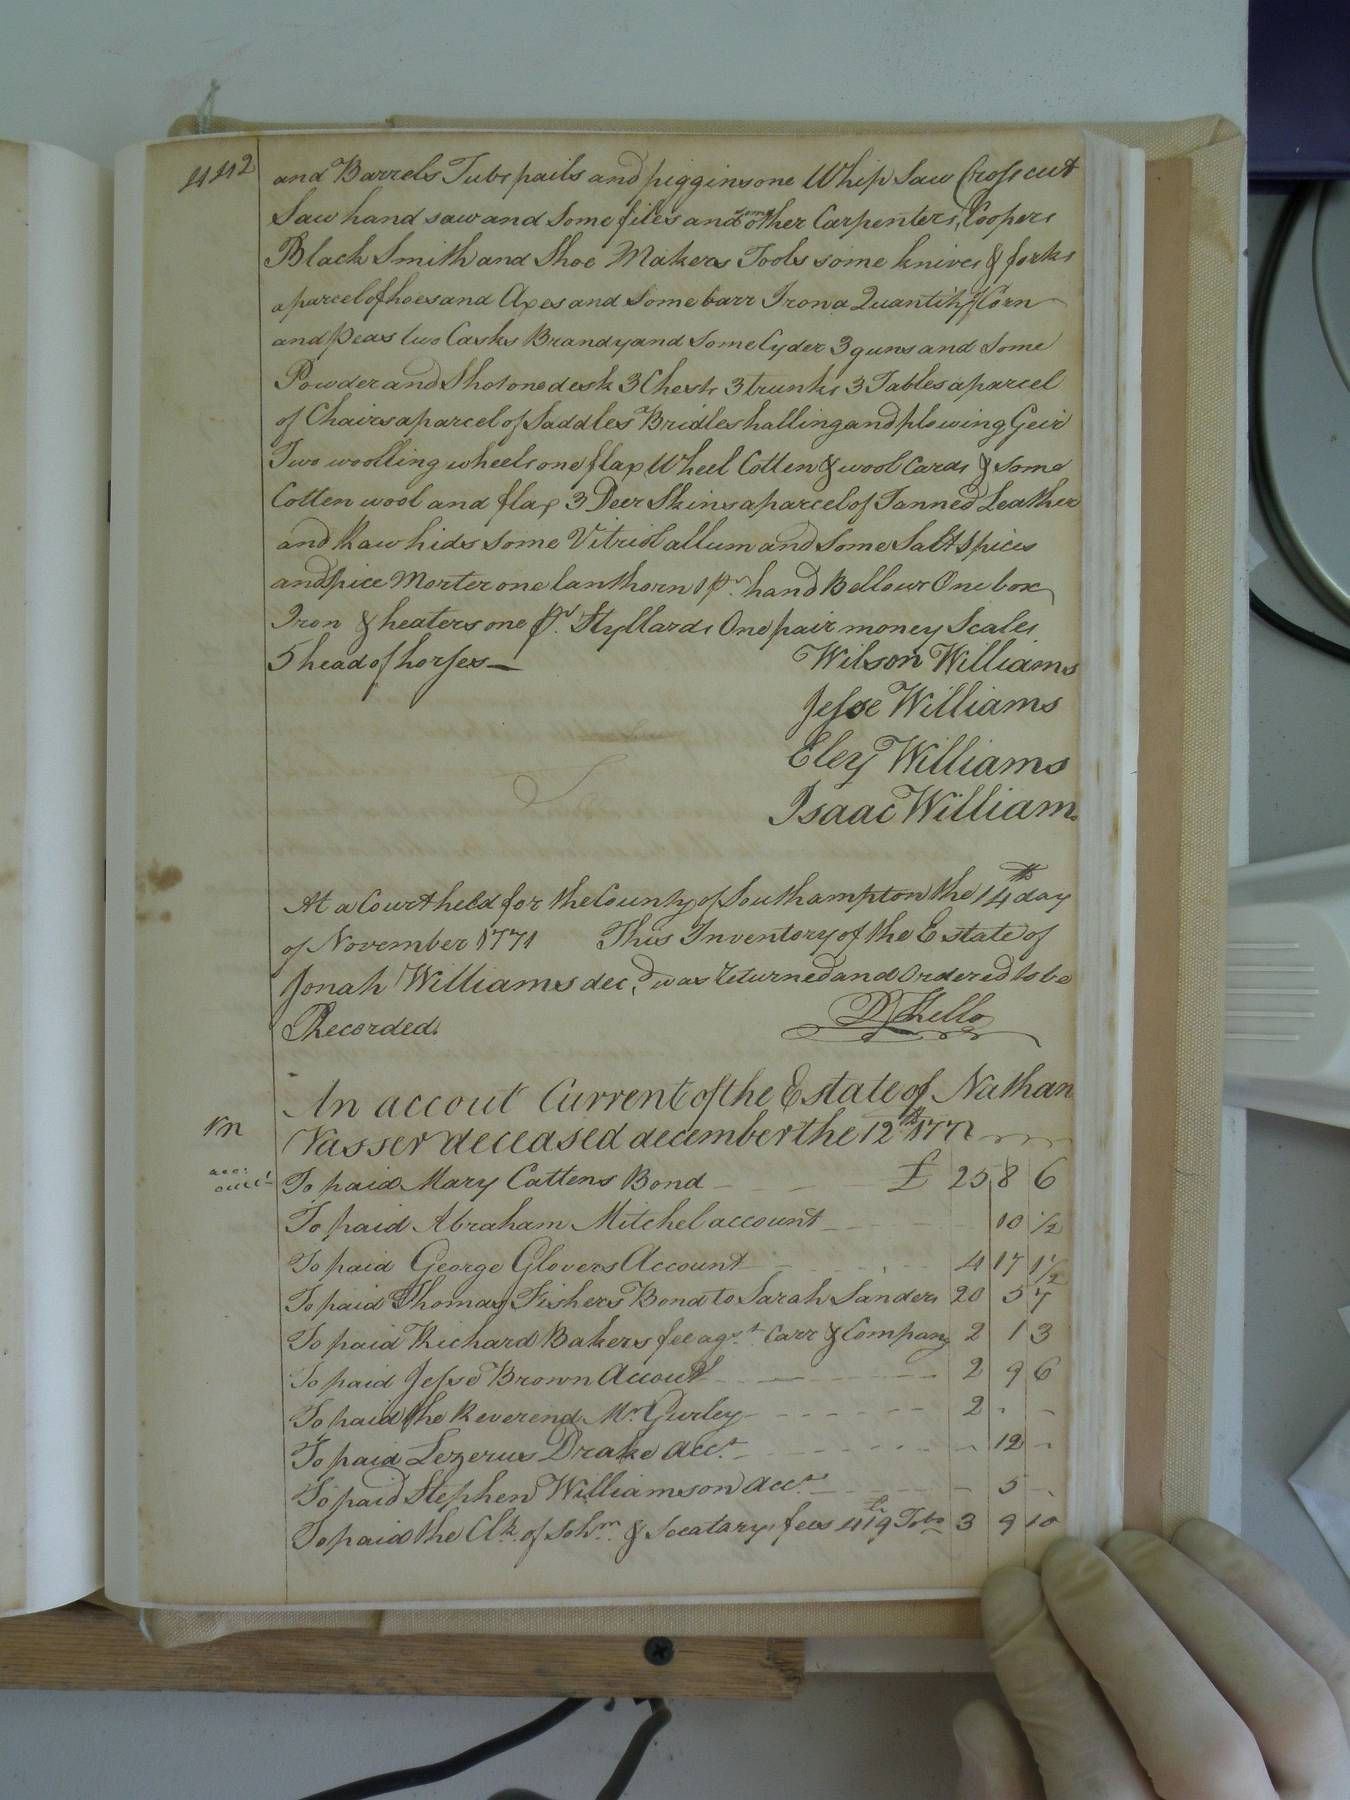 442
and Barrels Tubs pails and piggins one Whip Saw Cross cut
Saw hand saw and Some files and some other Carpenters, Coopers
Black Smith and Shoe Makers Tools some knives & forks
a parcel of hoes and Axes and Some barr Iron a Quantity of Corn
and Peas two Casks Brandy and Some Cyder 3 guns and Some
Powder and Shot one desk 3 Chests 3 trunks 3 Tables a parcel
of Chairs a parcel of Saddles Bridles halling and plowing Geir
Two woolling wheels one flax Wheel Cotten & wool Cards & Some
Cotten wool and flax 3 Deer Skins a parcel of Tanned Leather
and Raw hids some Vitriol allum and Some Salt spices
and spice Morter one lanthorn 1 pr. hand Bellows One box
Iron & heaters one pr. Styllards One pair money Scales
5 head of horses
Wilson Williams
Jesse Williams
Eley Williams
Isaac Williams
At a Court held for the County of Southampton the 14th day
of November 1771 This Inventory of the Estate of
Jonah Williams decd. was returned and Ordered to be
Recorded.
An accout Current of the Estate of Nathan
Vasser deceased december the 12th 1771
To paid Mary Cattens Bond £ 25 8 6
To paid Abraham Mitchel account 10 1/2
To paid George Glovers Account 4 17 1 1/2
To paid Thomas Fishers Bond to Sarah Sanders 20 5 7
To paid Richard Bakers fee agst. Carr & Company 2 1 3
To paid Jesse Brown Accout 2 9 6
To paid the Reverend Mr Gurley 2 - -
To paid Lezerus Drake acct. - 12 -
To paid Stephen Williamson acct. - 5 -
To paid the Clk. of Sohm. & Secatarys fees 419 lb Tobo 3 9 10